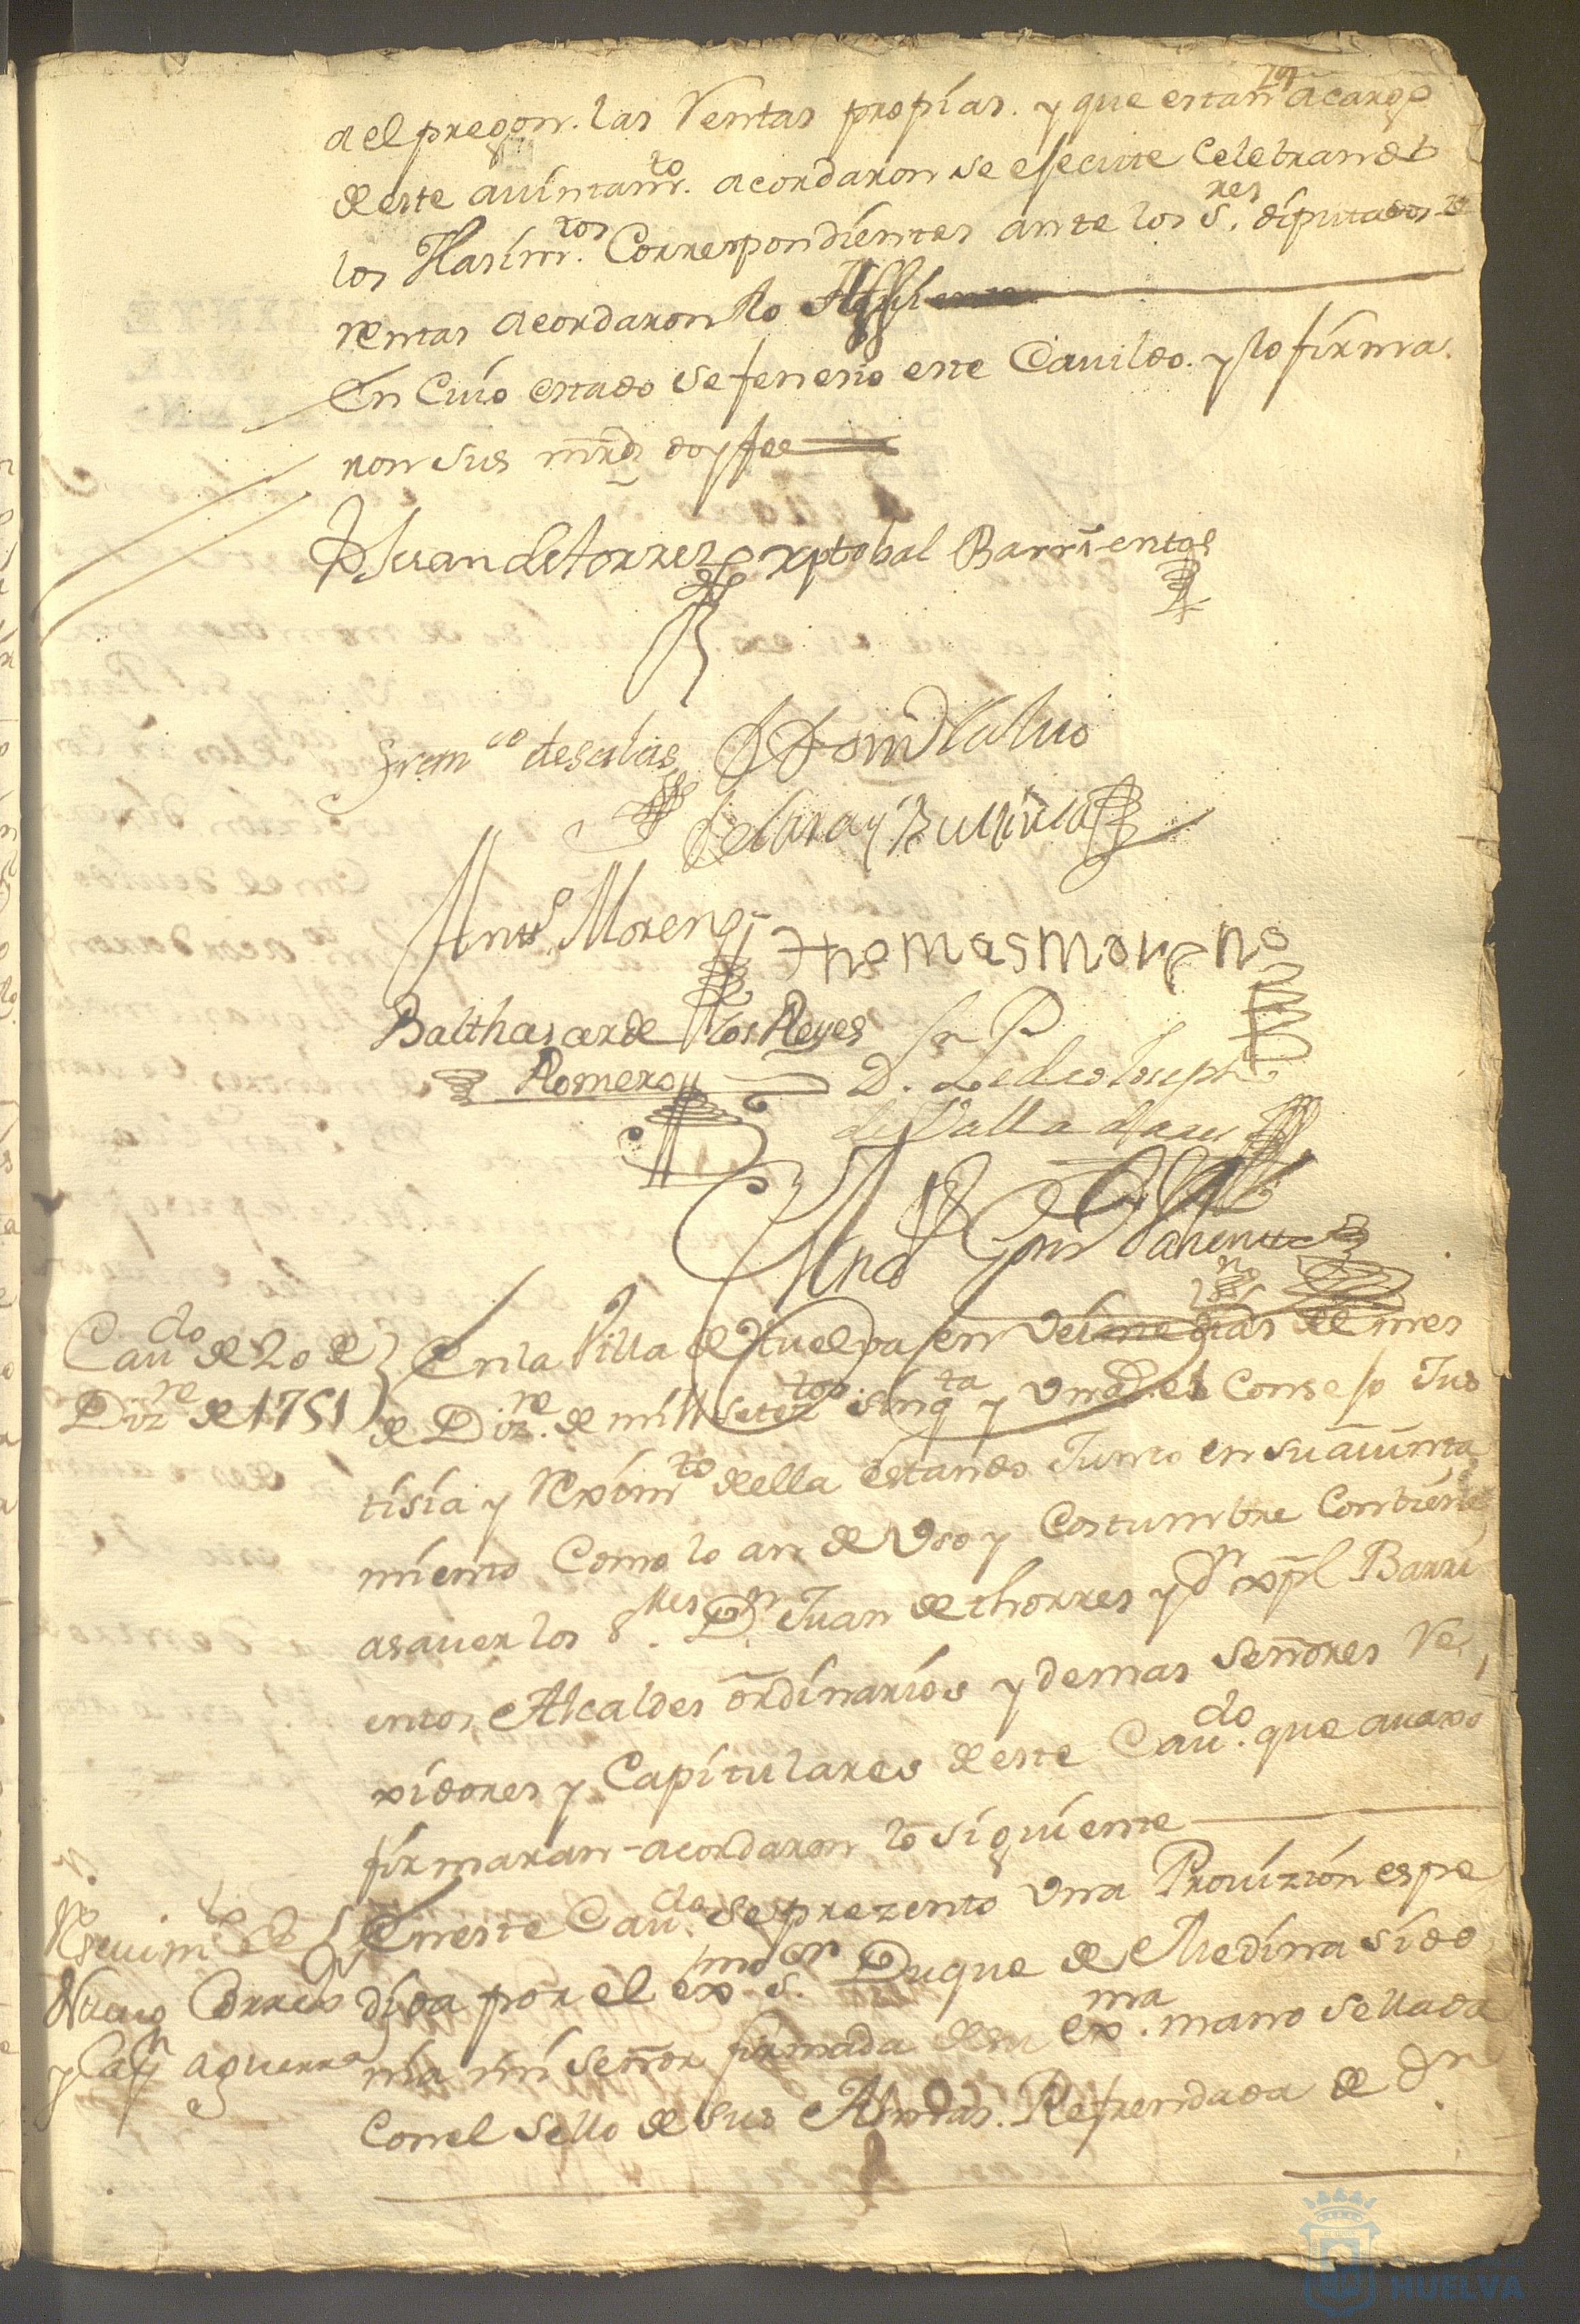 a el pregon. las Rentas propias. y que estan a cargo
de este auintam.to acordaron se esecute Celebrando
los Hasim.tos Correspondientes ante los S.res diputados de
rentas acordaronlo
En Cuio estado se fenesio este Cauildo. y lo firma
ron sus mrds doy fee
Dn Juan de torres xptobal Barrientos
Fran.co de salas
de lara y
Antto Moreno thomas moreno
Balthasar de los Reyes
Romero D. Joseph
de Valladares
Cau.do de 20 de
Diz.re de 1751
En la Villa de Huelva en Veinte dias del mes
de Diz.re de mill setez.tos sinq.ta y Uno el Conse jo Jus
tisia y Rexim.to della estando Junto en su aiunta
miento Como lo an de Uso y Costumbre Combiene
asauer los S.res Dn Juan de thorres y Dn xpl Barri
entos Alcaldes ordinarios y demas señores Re
xidores y Capitulares deste Cau.do que auaxo
firmaran acordaron lo siguiente
Reseuim.to del
Nueuo Correx.or
y Capn a guerra
En este Cau.do se prezento Una Prouizion espe
dida por el ex.mo s.or Duque de Medina sido
nia mi señor firmada de su ex.ma mano sellada
Con el sello de sus Armas. Refrendada de Dn
HUELVA